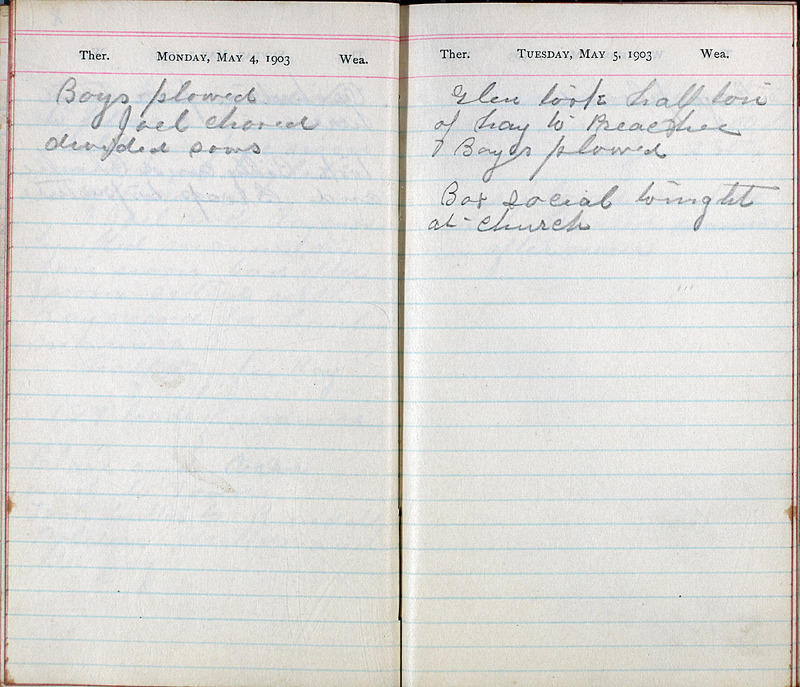 Ther. MONDAY, MAY 4, 1903 Wea.
Boys plowed
Joel chored
divided sows
Ther. TUESDAY, MAY 5, 1903 Wea.
Glen took half ton
of hay to Preacher
Boys plowed
Box social tonight
at church